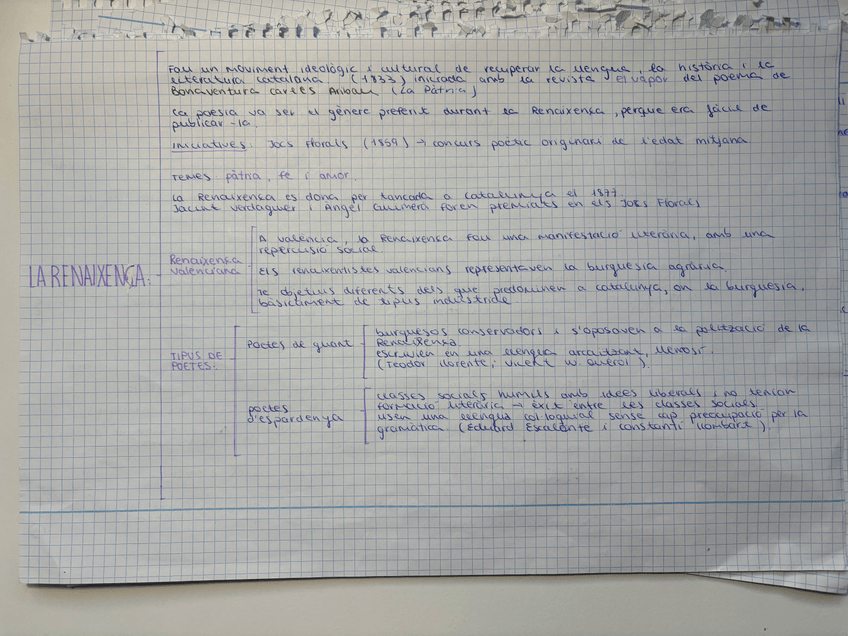 Fou un moviment ideològic i cultural de recuperar la llengua, la història i la
literatura catalana (1833) iniciada amb la revista El vapor del poema de
Bonaventura Carles Aribau (La Pàtria)
La poesia va ser el gènere preferit durant la Renaixença, perque era fàcil de
publicar-la.
Iniciatives: Jocs Florals (1859) → concurs poètic originari de l'edat mitjana
TEMES pàtria, fe i amor.
La Renaixença es dona per tancada a Catalunya el 1877.
Jacint Verdaguer i Àngel Guimerà foren premiats en els Jocs Florals
LA RENAIXENÇA:
Renaixença
valenciana
A València, la Renaixença fou una manifestació literària, amb una
repercusió social
Els renaixentistes valencians representaven la burguesia agrària.
Te objetius diferents dels que predominen a Catalunya, on la burguesia,
bàsicament de tipus industrial
TIPUS DE
POETES:
Poetes de guant
burguesos conservadors i s'oposaven a la polització de la
Renaixença.
escrivien en una llengua arcaitzant, llemosí.
(Teodor Llorente, Vicent W. Querol).
poetes
d'espardenya
classes socials humils amb idees liberals i no tenian
formació literària → èxit entre les classes socials
usen una llengua col·loquial sense cap preocupació per la
gramàtica. (Eduard Escalante i Constantí Llombart).